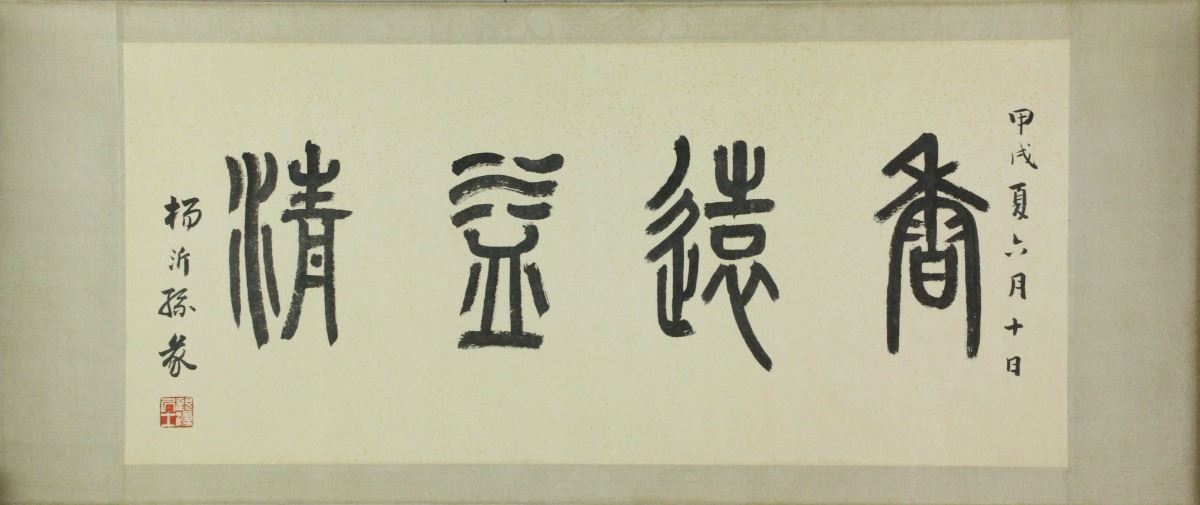 甲戌夏六月十日
香遠益清
杨沂孫篆